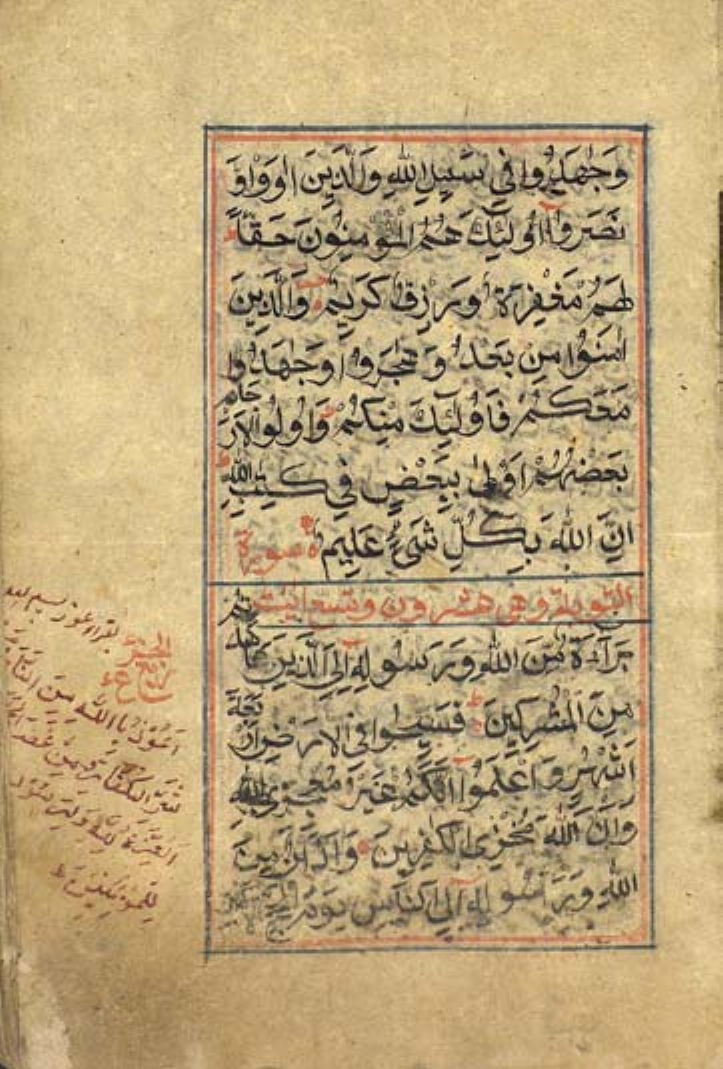 وَجٰهَدُوا فِي سَبِيلِ اللّٰهِ وَالَّذِينَ اٰوَوْا وَّ
نَصَرُوا اُولٰٓئِكَ هُمُ الْمُؤْمِنُونَ حَقًّا
لَهُمْ مَغْفِرَةٌ وَرِزْقٌ كَرِيمٌ وَالَّذِينَ
اٰمَنُوا مِنْ بَعْدُ وَهَجَرُوا وَجٰهَدُوا
مَعَكُمْ فَاُولٰٓئِكَ مِنْكُمْ وَاُولُوا الْاَرْ
حَامِ
بَعْضُهُمْ اَوْلٰى بِبَعْضٍ فِي كِتٰبِ اللّٰهِ
اِنَّ اللّٰهَ بِكُلِّ شَيْءٍ عَلِيمٌ سورة
التوبة وهي
بَرَآءَةٌ مِّنَ اللّٰهِ وَرَسُولِهِ اِلَى الَّذِينَ عَاهَدْ
تُمْ
مِنَ الْمُشْرِكِينَ فَسِيحُوا فِي الْاَرْضِ اَرْ
بَعَةَ
اَشْهُرٍ وَاعْلَمُوا اَنَّكُمْ غَيْرُ مُعْجِزِي اللّٰهِ
وَاَنَّ اللّٰهَ مُخْزِي الْكٰفِرِينَ وَاَذَانٌ مِنَ
اللّٰهِ وَرَسُولِهِ اِلَى النَّاسِ يَوْمَ الْحَجِّ
اَعُوذُ بِاللّٰهِ مِنَ النَّارِ